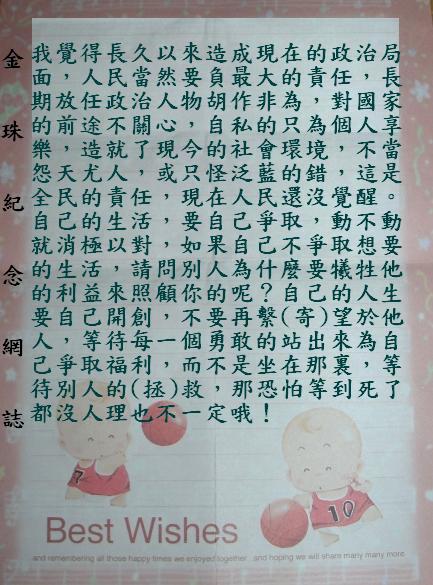 金珠紀念網誌
我覺得長久以來造成現在的政治局
面，人民當然要負最大的責任，長
期放任政治人物胡作非為，對國家
的前途不關心，自私的只為個人享
樂，造就了現今的社會環境，不當
怨天尤人，或只怪泛藍的錯，這是
全民的責任，現在人民還沒覺醒。
自己的生活，要自己爭取，動不動
就消極以對，如果自己不爭取想要
的生活，請問別人為什麼要犧牲他
的利益來照顧你的呢？自己的人生
要自己開創，不要再繫(寄)望於他
人，等待每一個勇敢的站出來為自
己爭取福利，而不是坐在那裏，等
待別人的(拯)救，那恐怕等到死了
都沒人理也不一定哦！
7
10
Best Wishes
and remembering all those happy times we enjoyed together...and hoping we will share many many more